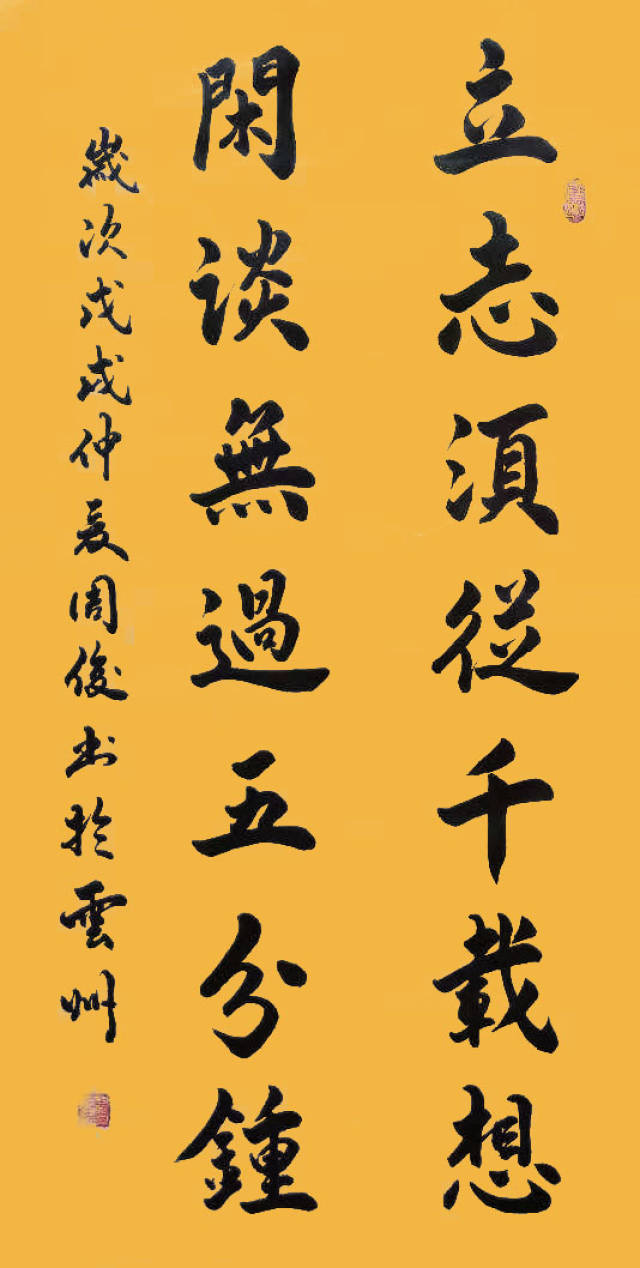 立志須從千載想
閑談無過五分鍾
歲次戊戌仲夏周俊书於雲州